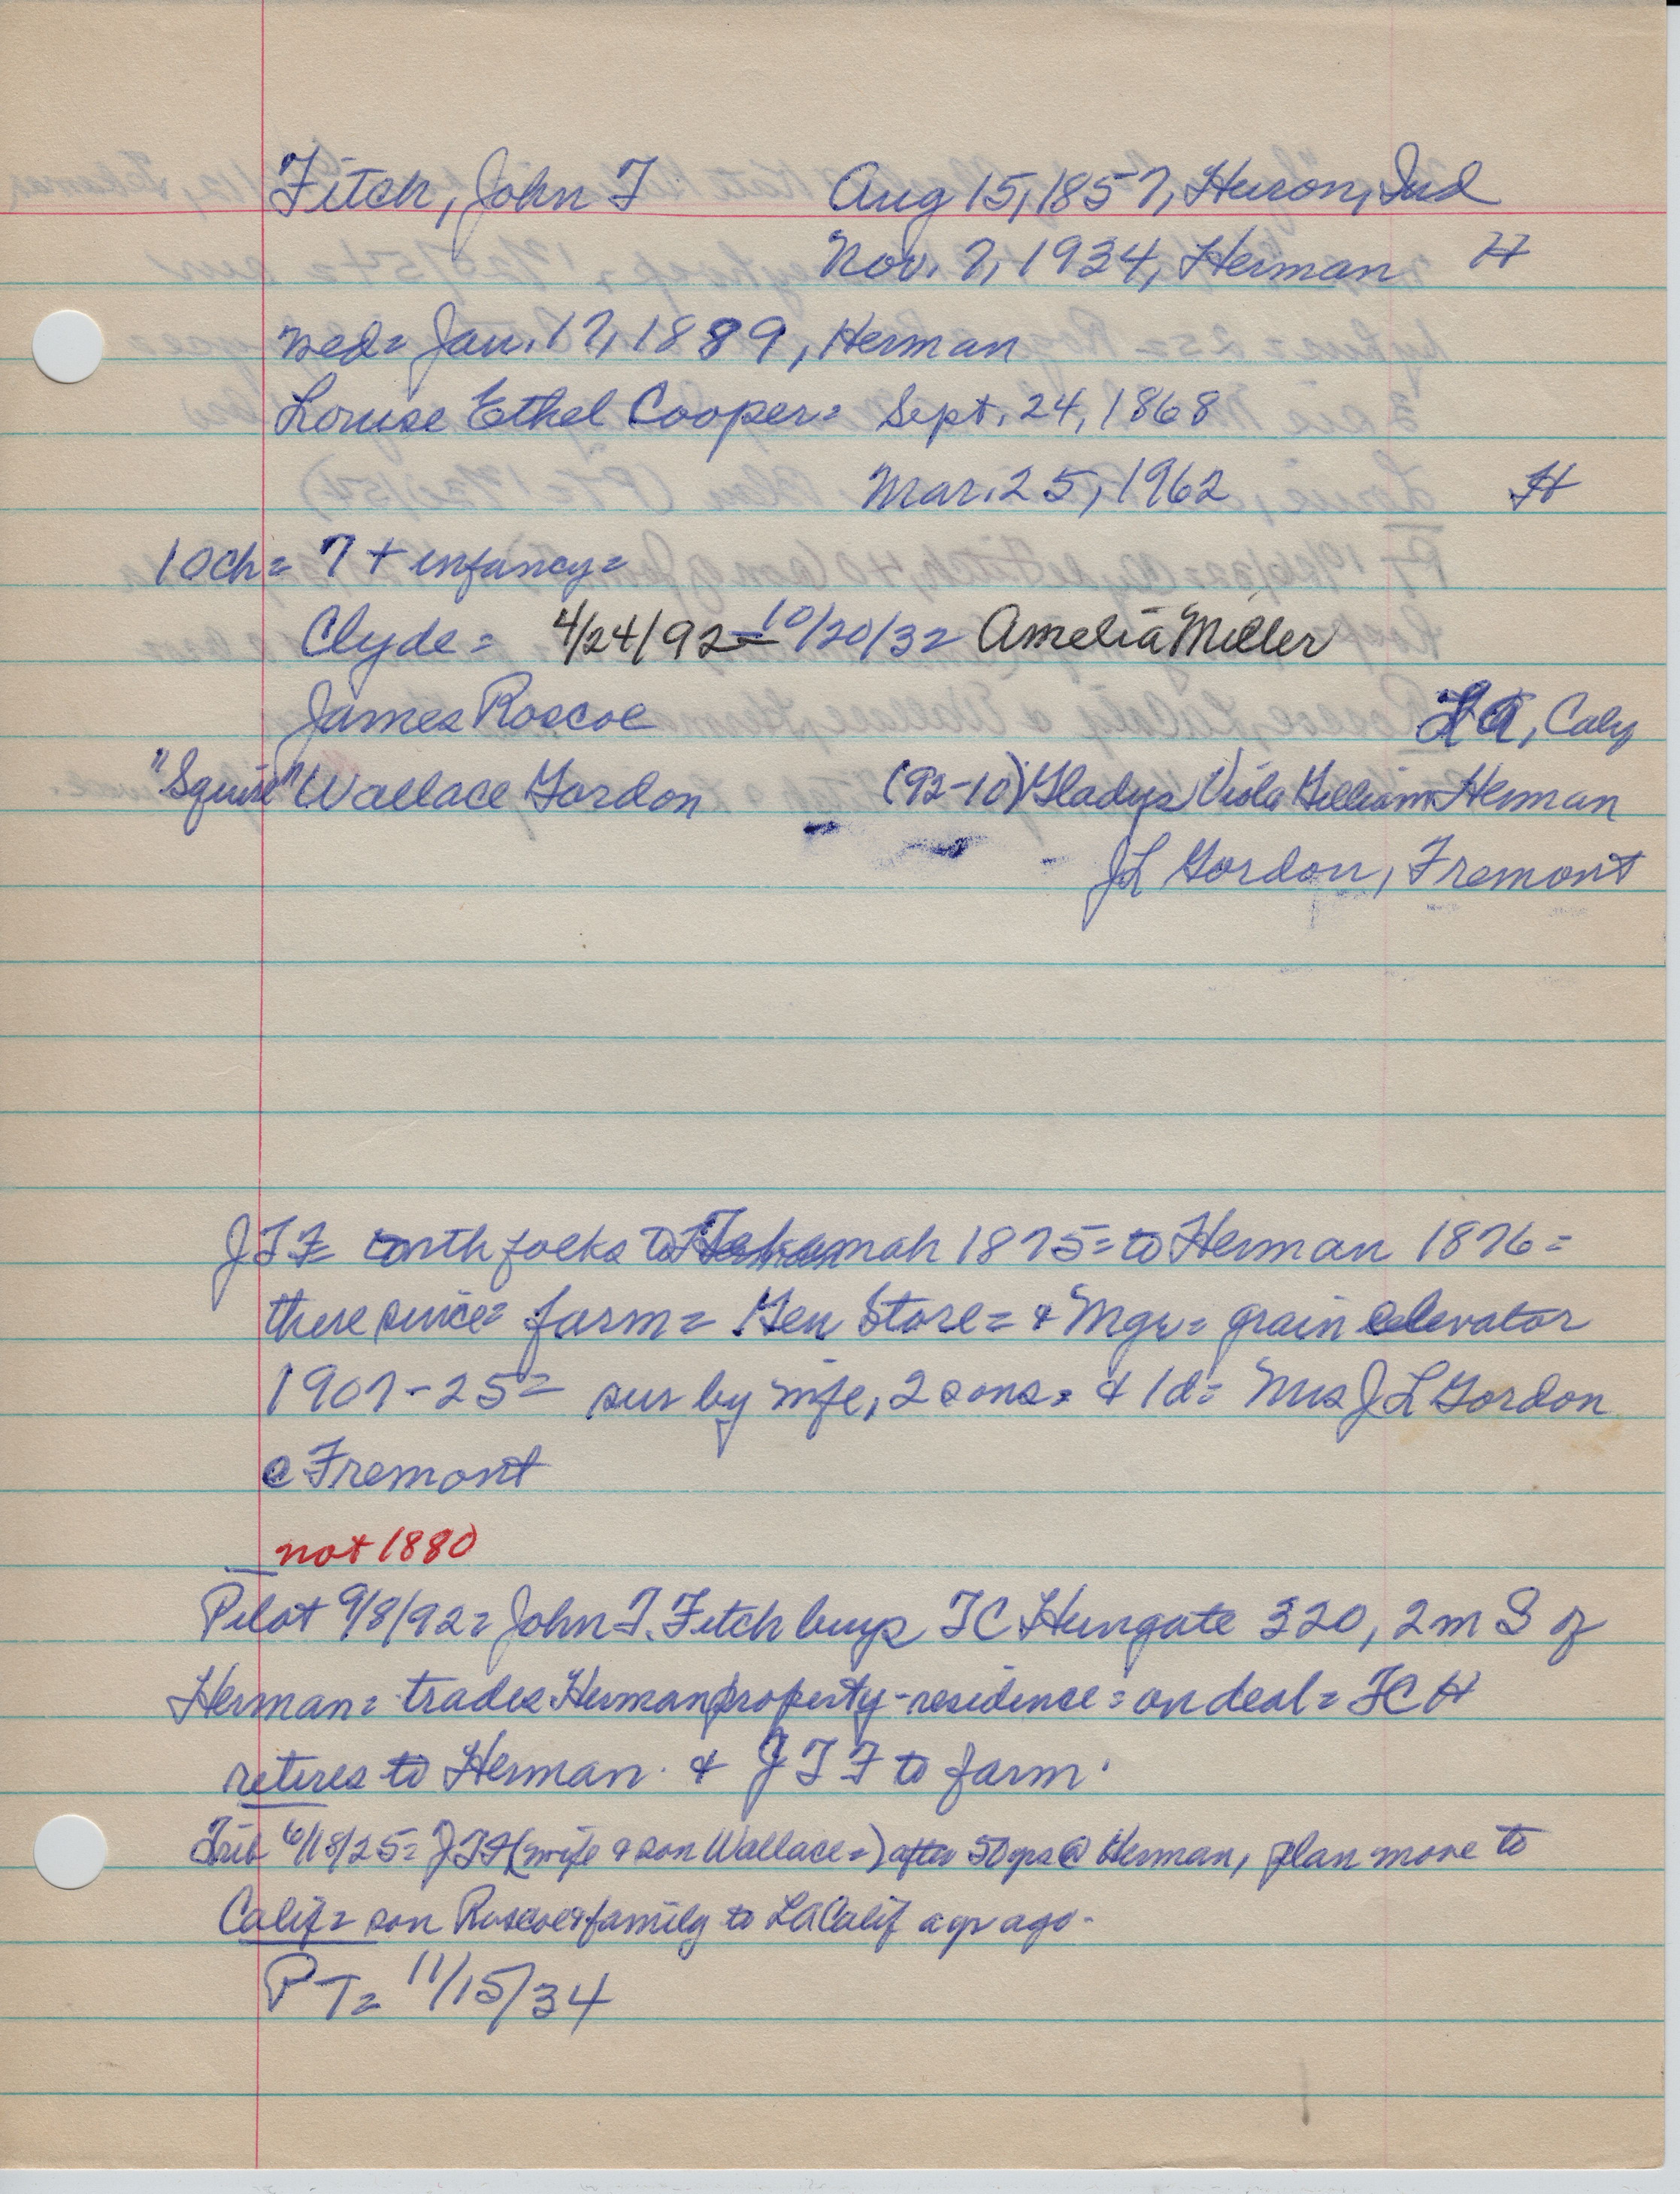 Fitch, John T Aug 15, 1857, Huron, Ind
Nov. 7, 1934, Herman H
wed= Jan. 17, 1889, Herman
Louise Ethel Cooper= Sept. 24, 1868
Mar. 25, 1962 H
10ch= 7 + infancy=
Clyde= 4/24/92=10/20/32 Amelia Miller
James Roscoe LA, Calif
"Squire" Wallace Gordon (92-10) Gladys Viola Gilliam Herman
JL Gordon, Fremont
JTF with folks to Tekamah 1875= to Herman 1876=
there since= farm= Gen Store= & Mgr= grain elevator
1907-25= sur by wife, 2 sons= & 1d= Mrs J L Gordon
@ Fremont
not 1880
Pilot 9/8/92= John T. Fitch buys TC Hungate 320, 2m S of
Herman= trades Herman property-residence= on deal= TCH
retires to Herman. & JTF to farm.
Trib 6/18/25= JTF (wife & son Wallace=) after 50 yrs @ Herman, plan move to
Calif= son Roscoe & family to LA Calif a yr ago-
PT= 11/15/34